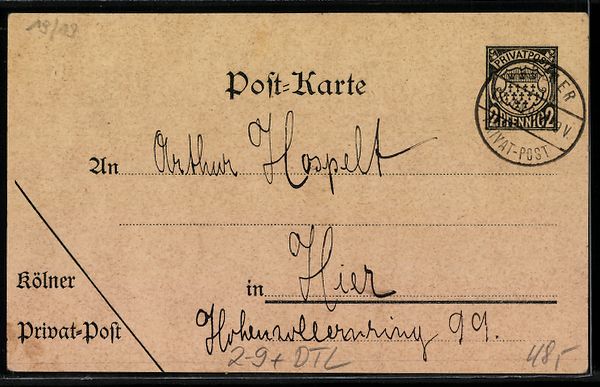 19/19
Post-Karte
PRIVATPOST
2 PFENNIG 2
PRIVAT-POST
An Arthur Hospelt
in Hier
Kölner
Privat-Post
Hohenzollernring 99.
2-9+ DTL
48,-